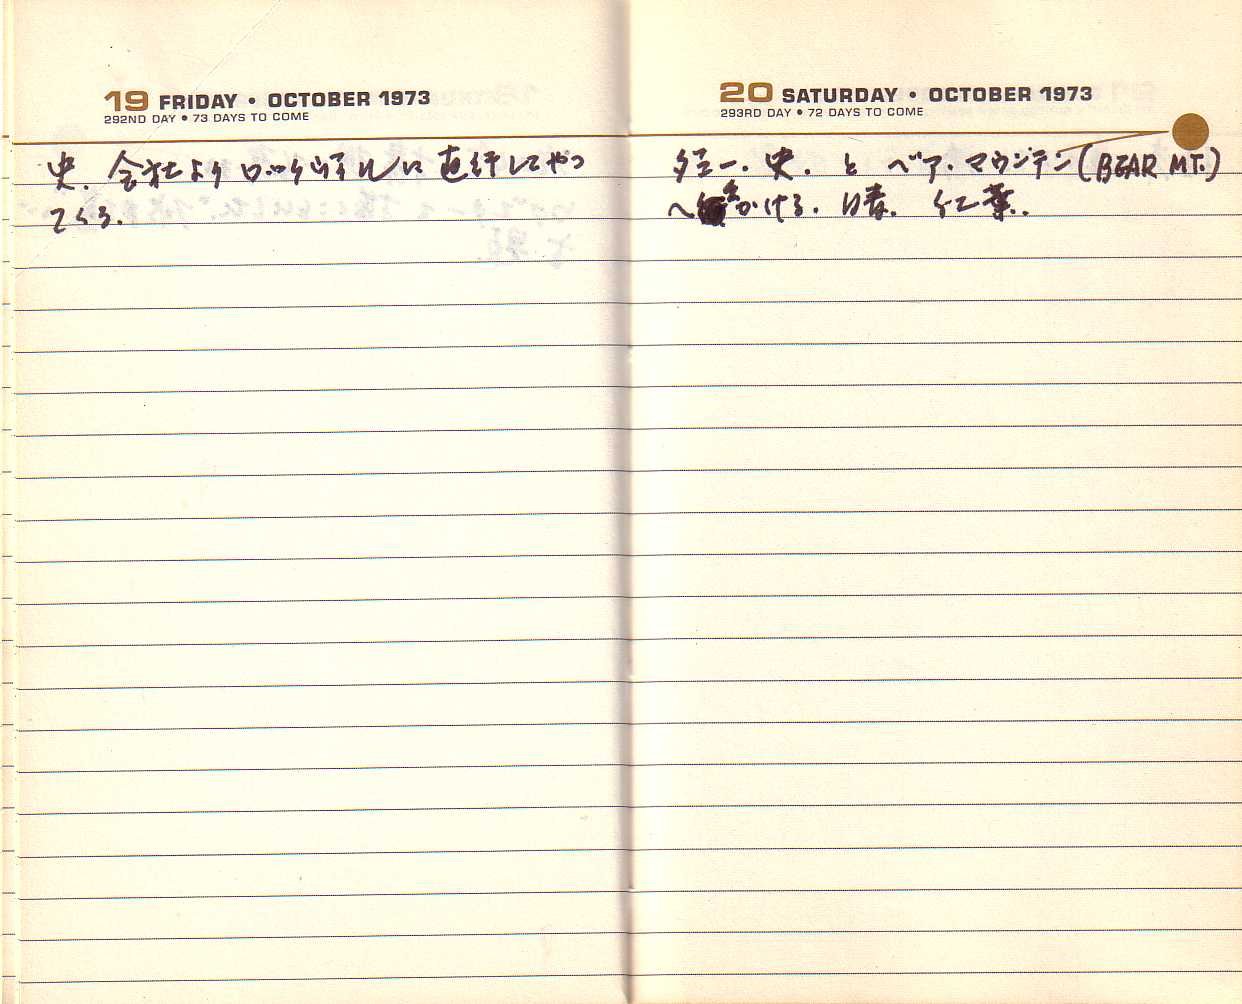 19 FRIDAY • OCTOBER 1973
292ND DAY • 73 DAYS TO COME
史. 会社より ロックヴィルに直行してやっ
てくる.
20 SATURDAY • OCTOBER 1973
293RD DAY • 72 DAYS TO COME
一. 史. と ベア・マウンテン (BEAR MT.)
へ かける. 紅葉.